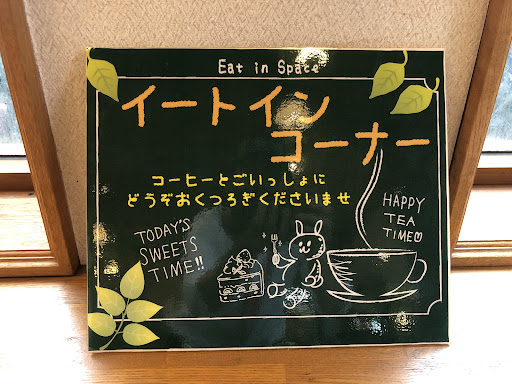 Eat in Space
イートイン
コーナー
コーヒーとごいっしょに
どうぞおくつろぎくださいませ
TODAY'S
SWEETS
TIME!!
HAPPY
TEA
TIME♡